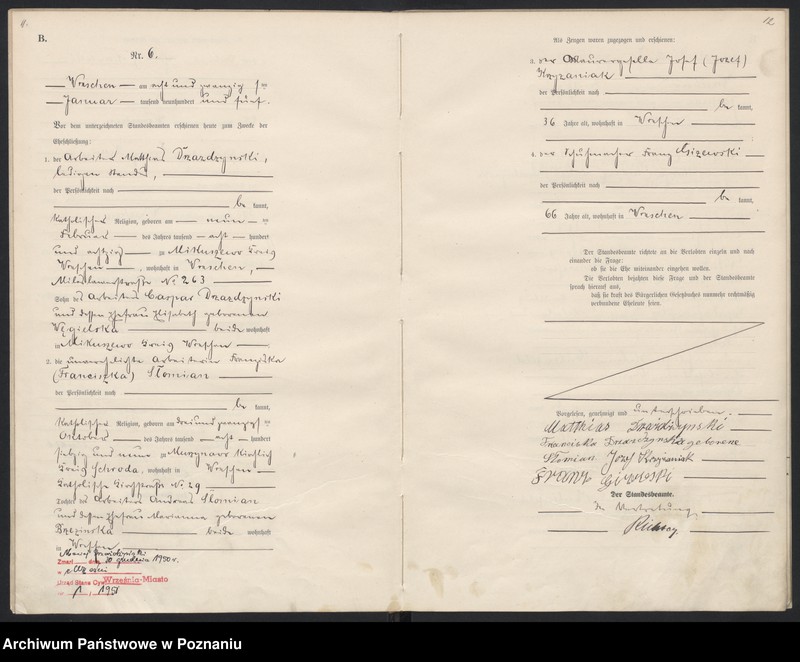 B.
Nr. 6.
Wreschen am acht und zwanzig sten
Januar tausend neunhundert und fünf.
Vor dem unterzeichneten Standesbeamten erschienen heute zum Zwecke der
Eheschließung:
1. der Arbeiter Matthias Drzazdzynski,
ledigen Standes,
der Persönlichkeit nach
be kannt,
katholischer Religion, geboren am neun ten
Februar des Jahres tausend acht hundert
und achtzig zu Mikuszewo Kreis
Wreschen, wohnhaft in Wreschen,
No 263
Sohn des Arbeiters Caspar Drzazdzynski
und dessen Ehefrau Elisabeth geborenen
Węgielska beide wohnhaft
in Mikuszewo Kreis Wreschen
2. die unverehelichte Arbeiterin Franziska
(Franciszka) Słomian
der Persönlichkeit nach
be kannt,
katholischer Religion, geboren am drei und zwanzigsten
Oktober des Jahres tausend acht hundert
siebzig und neun zu Murzynowo kirchlich
Kreis Schroda, wohnhaft in Wreschen
Katholische Kirchstraße No 29
Tochter des Arbeiters Andreas Słomian
und dessen Ehefrau Marianna geborenen
Brzezinska beide wohnhaft
in Wreschen
Zmarł dnia 10 grudnia 1950 r.
w Wrześni
Urząd Stanu Cyw. Września-Miasto
1 / 1951
12
Als Zeugen waren zugezogen und erschienen:
3. der Maurergeselle Josef (Jozef)
Krzyzaniak
der Persönlichkeit nach
be kannt,
36 Jahre alt, wohnhaft in Wreschen
4. der Schuhmacher Franz Gizewski
der Persönlichkeit nach
be kannt,
66 Jahre alt, wohnhaft in Wreschen
Der Standesbeamte richtete an die Verlobten einzeln und nach
einander die Frage:
ob sie die Ehe miteinander eingehen wollen.
Die Verlobten bejahten diese Frage und der Standesbeamte
sprach hierauf aus,
daß sie kraft des Bürgerlichen Gesetzbuches nunmehr rechtmäßig
verbundene Eheleute seien.
Vorgelesen, genehmigt und unterschrieben.
Matthias Drzażdżynski
Franciska geborene
Słomian Jozef Krzyżaniak
Franz Gizewski
Der Standesbeamte.
In Vertretung
Archiwum Państwowe w Poznaniu